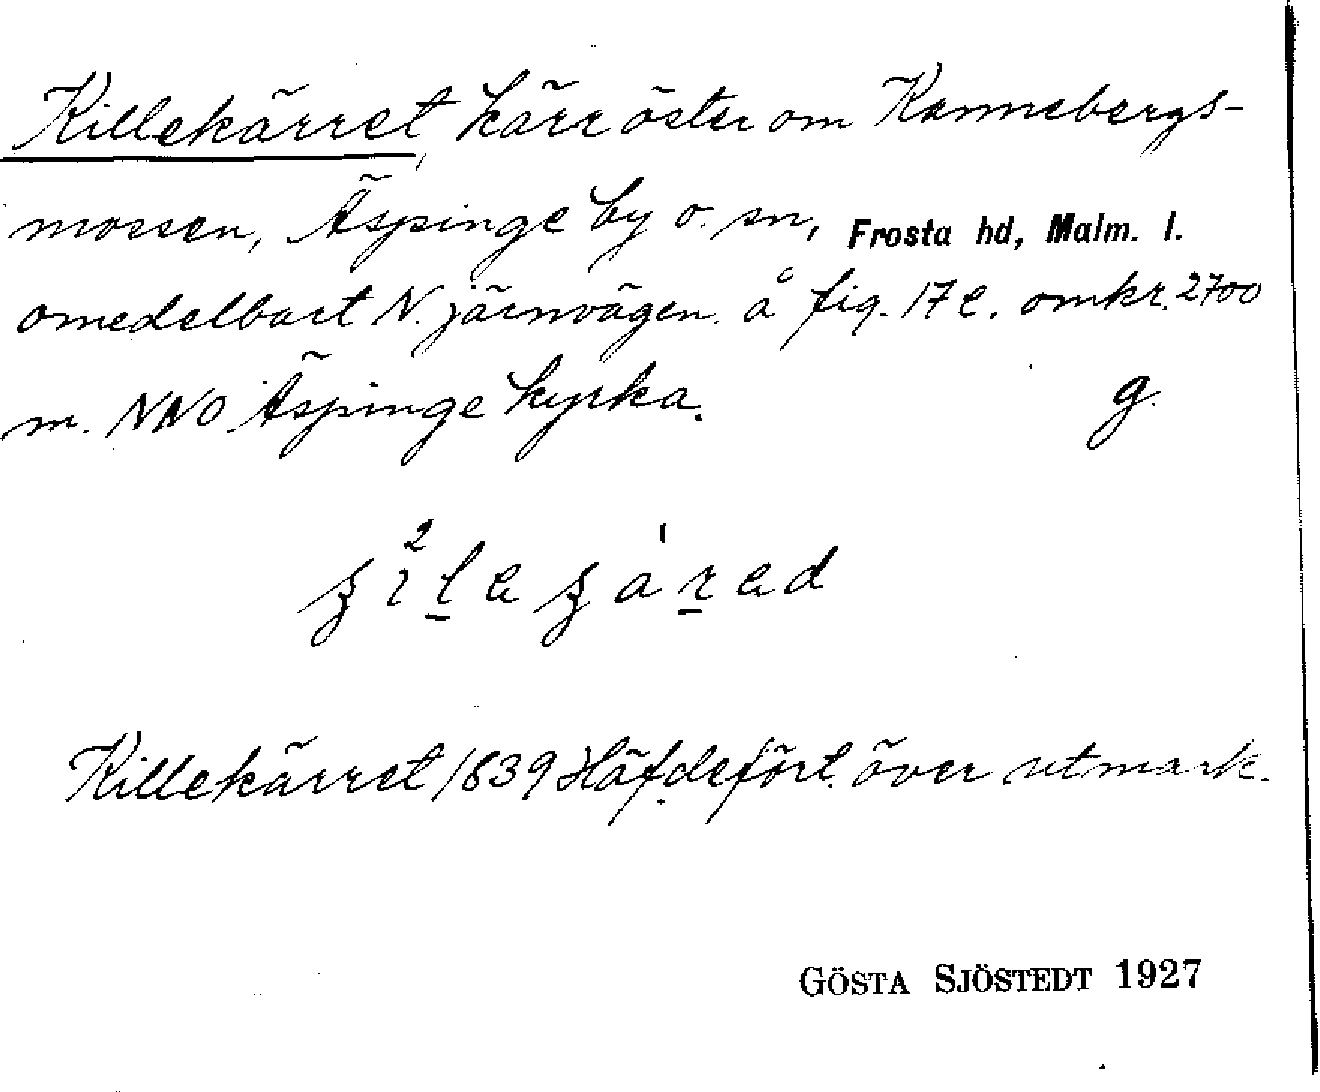 Killekärret, kärr öster om Kannebergs-
mossen, Äspinge by o. sn, Frosta hd, Malm. l.
omedelbart N. järnvägen å fig. 17 e. omkr. 2700
m. NNO Äspinge kyrka. g.
Killekärret 1839 Häfdeförl. över utmark.
GÖSTA SJÖSTEDT 1927